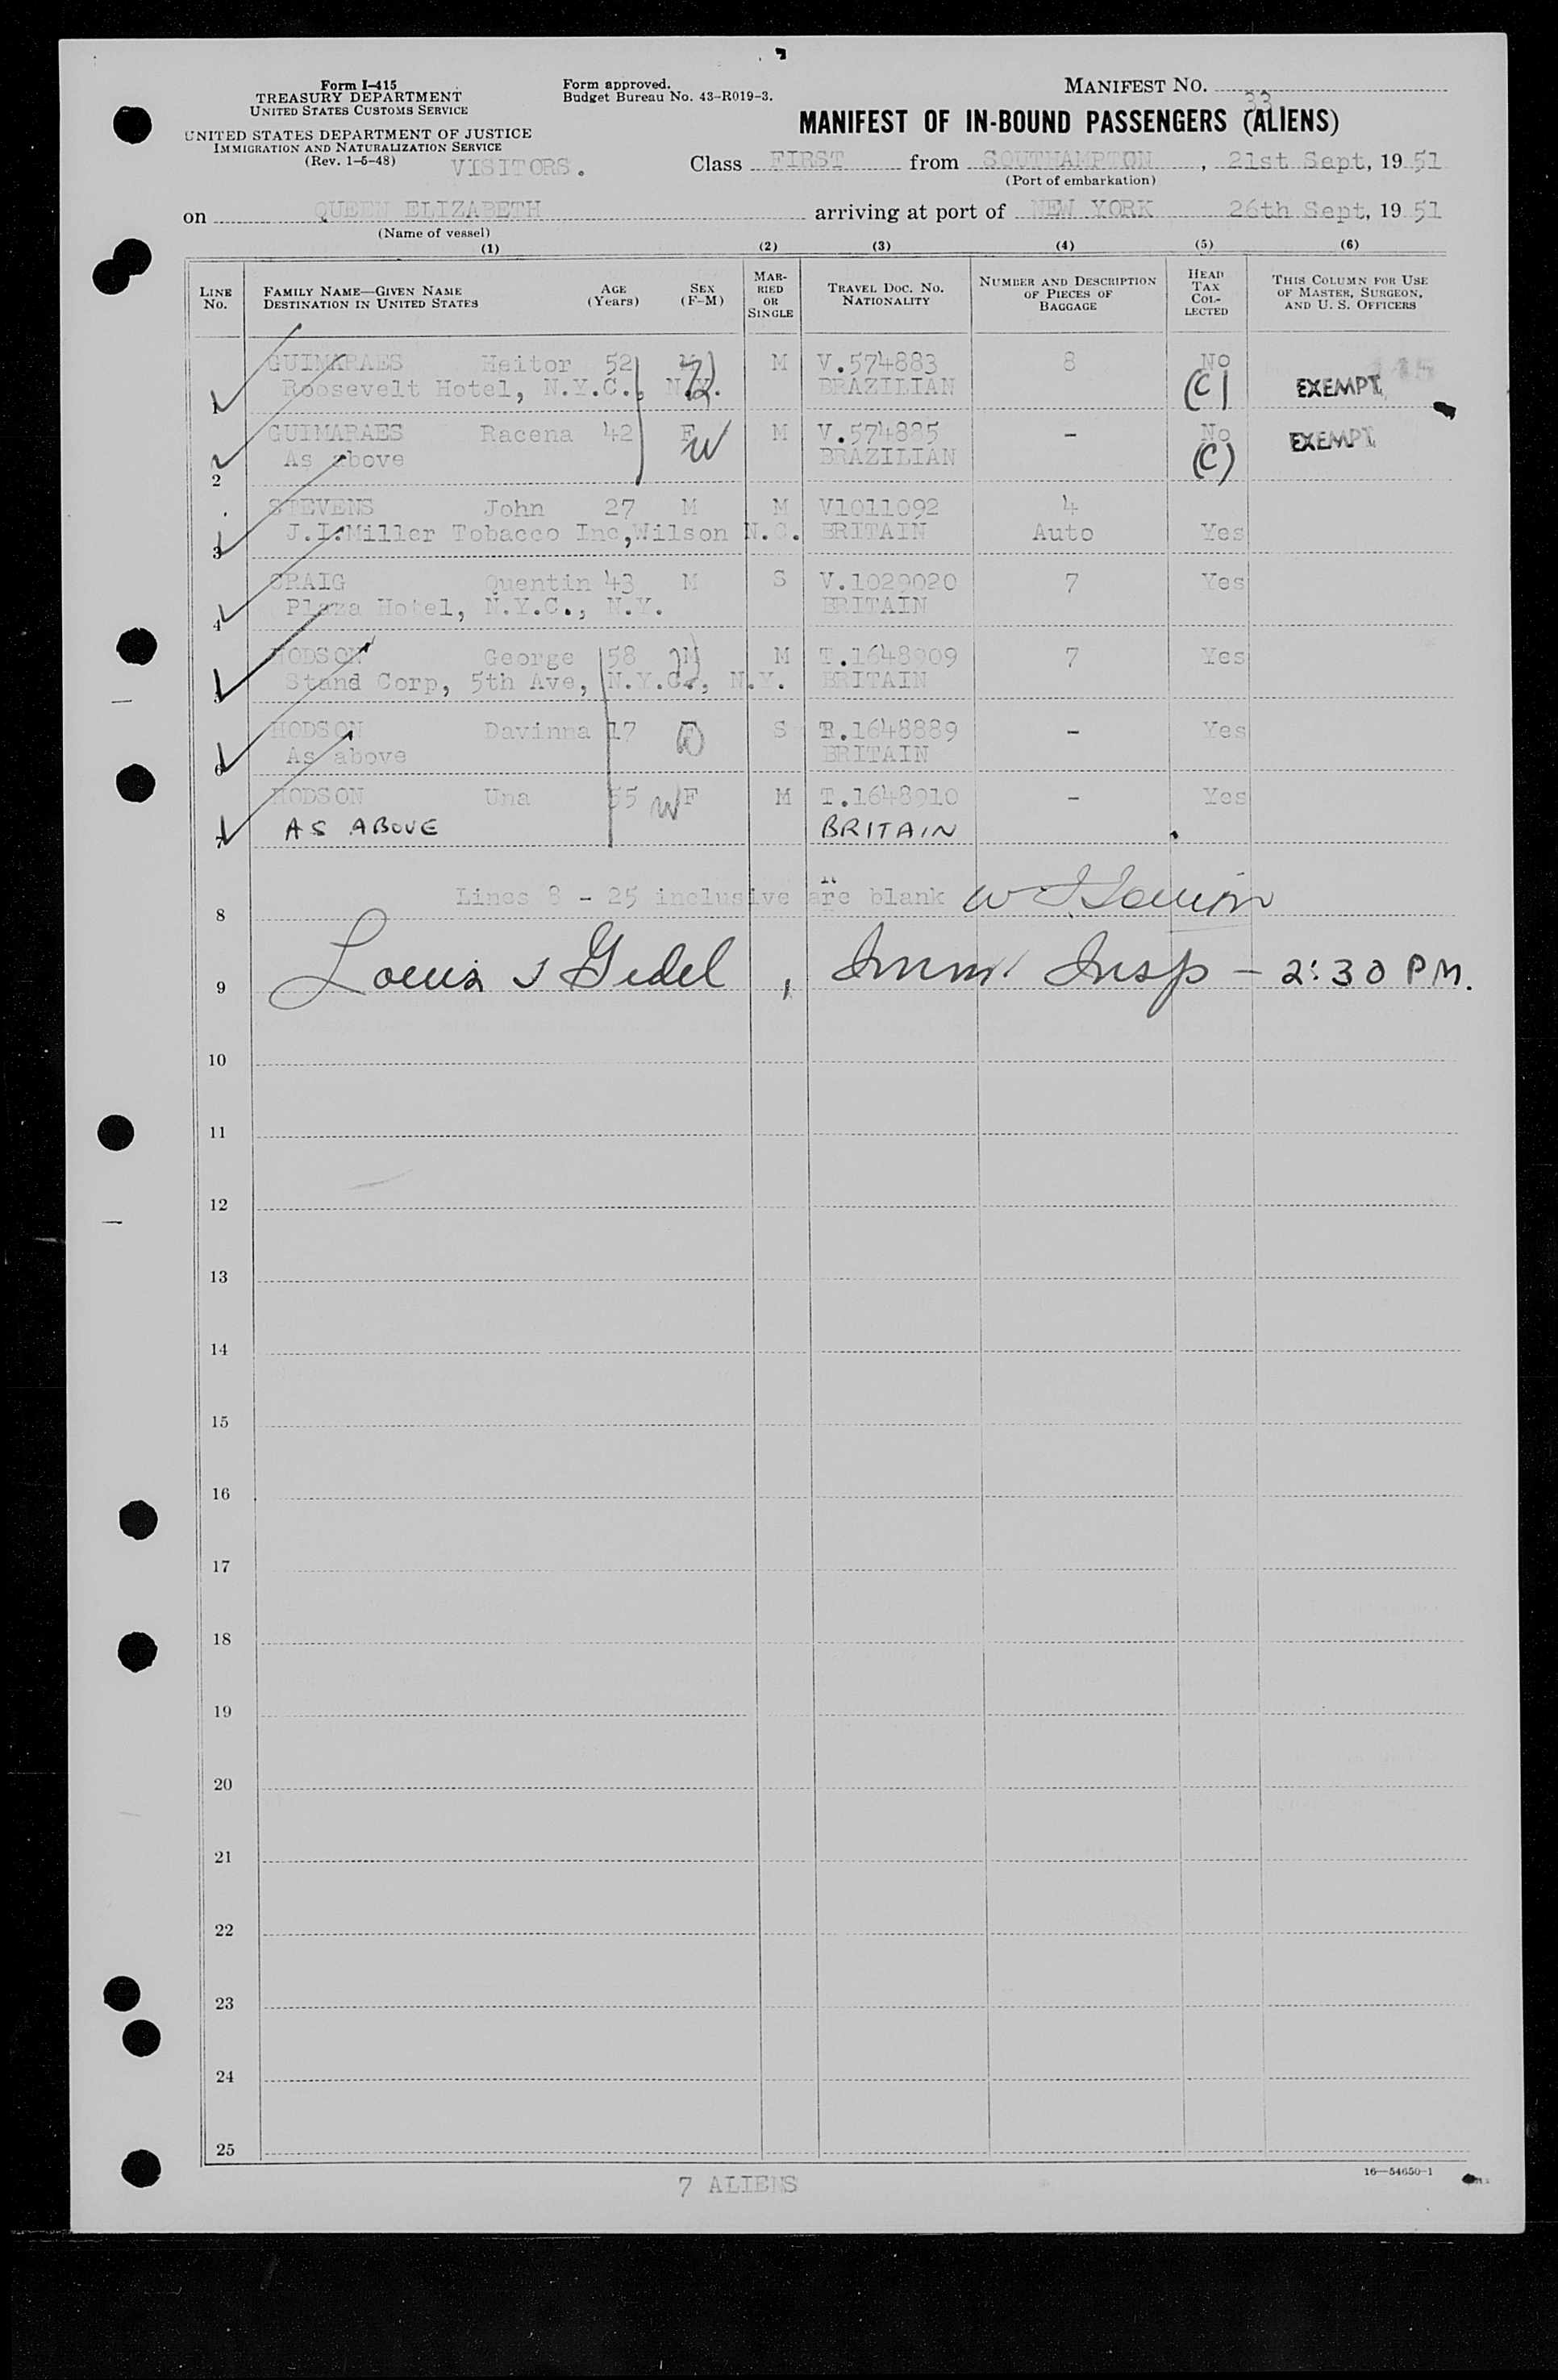 Form I-415
TREASURY DEPARTMENT
UNITED STATES CUSTOMS SERVICE
UNITED STATES DEPARTMENT OF JUSTICE
IMMIGRATION AND NATURALIZATION SERVICE
(Rev. 1-6-48)
VISITORS.
Form approved.
Budget Bureau No. 43-R019-3.
MANIFEST NO.
33
MANIFEST OF IN-BOUND PASSENGERS (ALIENS)
Class FIRST from SOUTHAMPTON, 21st Sept, 19 51
(Port of embarkation)
on QUEEN ELIZABETH arriving at port of NEW YORK 26th Sept, 19 51
(Name of vessel)
(1) (2) (3) (4) (5) (6)
LINE NO. FAMILY NAME—GIVEN NAME DESTINATION IN UNITED STATES AGE (Years) SEX (F-M) MARRIED OR SINGLE TRAVEL DOC. NO. NATIONALITY NUMBER AND DESCRIPTION OF PIECES OF BAGGAGE HEAD TAX COLLECTED THIS COLUMN FOR USE OF MASTER, SURGEON, AND U. S. OFFICERS
GUIMARAES Heitor 52 M M V.574883 8 No
1 Roosevelt Hotel, N.Y.C., N.Y. BRAZILIAN (C) EXEMPT
GUIMARAES Racena 42 F W M V.574885 - No EXEMPT
2 As above BRAZILIAN (C)
STEVENS John 27 M M V1011092 4
3 J.I.Miller Tobacco Inc,Wilson N.C. BRITAIN Auto Yes
CRAIG Quentin 43 M S V.1029020 7 Yes
4 Plaza Hotel, N.Y.C., N.Y. BRITAIN
HODSON George 58 M M T.1648909 7 Yes
5 Stand Corp, 5th Ave, N.Y.C., N.Y. BRITAIN
HODSON Davinna 17 F S T.1648889 - Yes
6 As above BRITAIN
HODSON Una 55 W F M T.1648910 - Yes
7 AS ABOVE BRITAIN
8 Lines 8 - 25 inclusive are blank
9 Louis J Gidel, Imm. Insp - 2:30 PM.
10
11
12
13
14
15
16
17
18
19
20
21
22
23
24
25
7 ALIENS
16—54650-1